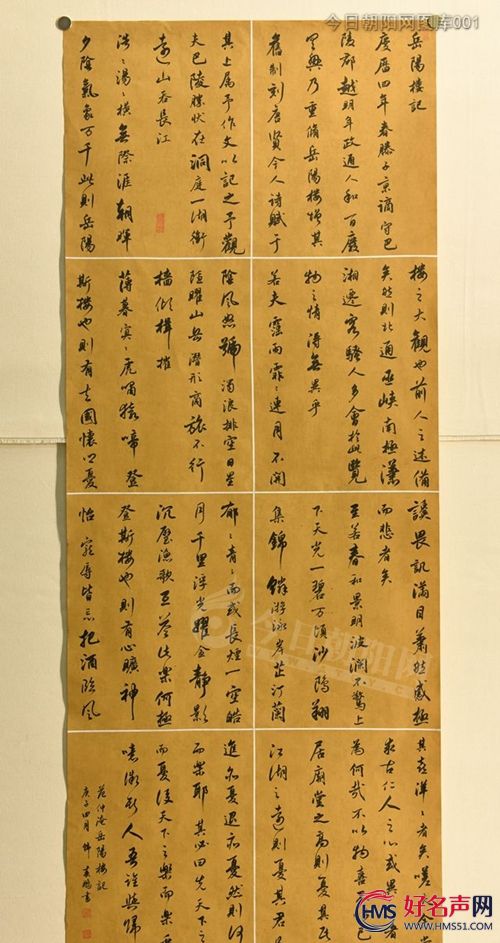 今日朝阳网图库001
岳陽樓記
慶曆四年春滕子京謫守巴
陵郡越明年政通人和百廢
具興乃重脩岳陽樓增其
舊制刻唐賢今人诗賦于
其上属予作文以記之予觀
夫巴陵勝狀在洞庭一湖銜
遠山吞長江
浩〻湯〻橫無際涯朝暉
夕陰氣象万千此則岳陽
樓之大觀也前人之述備
矣然則北通巫峽南極瀟
湘遷客騷人多會於此覽
物之情得無異乎
若夫霪雨霏〻連月不開
陰風怒號濁浪排空日星
隱曜山岳潛形商旅不行
檣傾楫摧
薄暮冥〻虎嘯猿啼登
斯樓也則有去國懷鄉憂
讒畏譏滿目蕭然感極
而悲者矣
至若春和景明波瀾不驚上
下天光一碧万頃沙鷗翔
集錦鱗游泳岸芷汀蘭
郁〻青〻而或長煙一空皓
月千里浮光耀金靜影
沉璧漁歌互答此樂何極
登斯樓也則有心曠神
怡寵辱皆忘把酒臨風
其喜洋〻者矣嗟
求古仁人之心或異
為何哉不以物喜
居廟堂之高則憂其民
江湖之遠則憂其君
進亦憂退亦憂然則何
而樂耶其必曰先天下之
而憂後天下之樂而樂
噫微斯人吾誰與歸
范仲淹岳陽樓記
庚子四月 書
今日朝阳网
HMS 好名声网
WWW.HMS51.COM